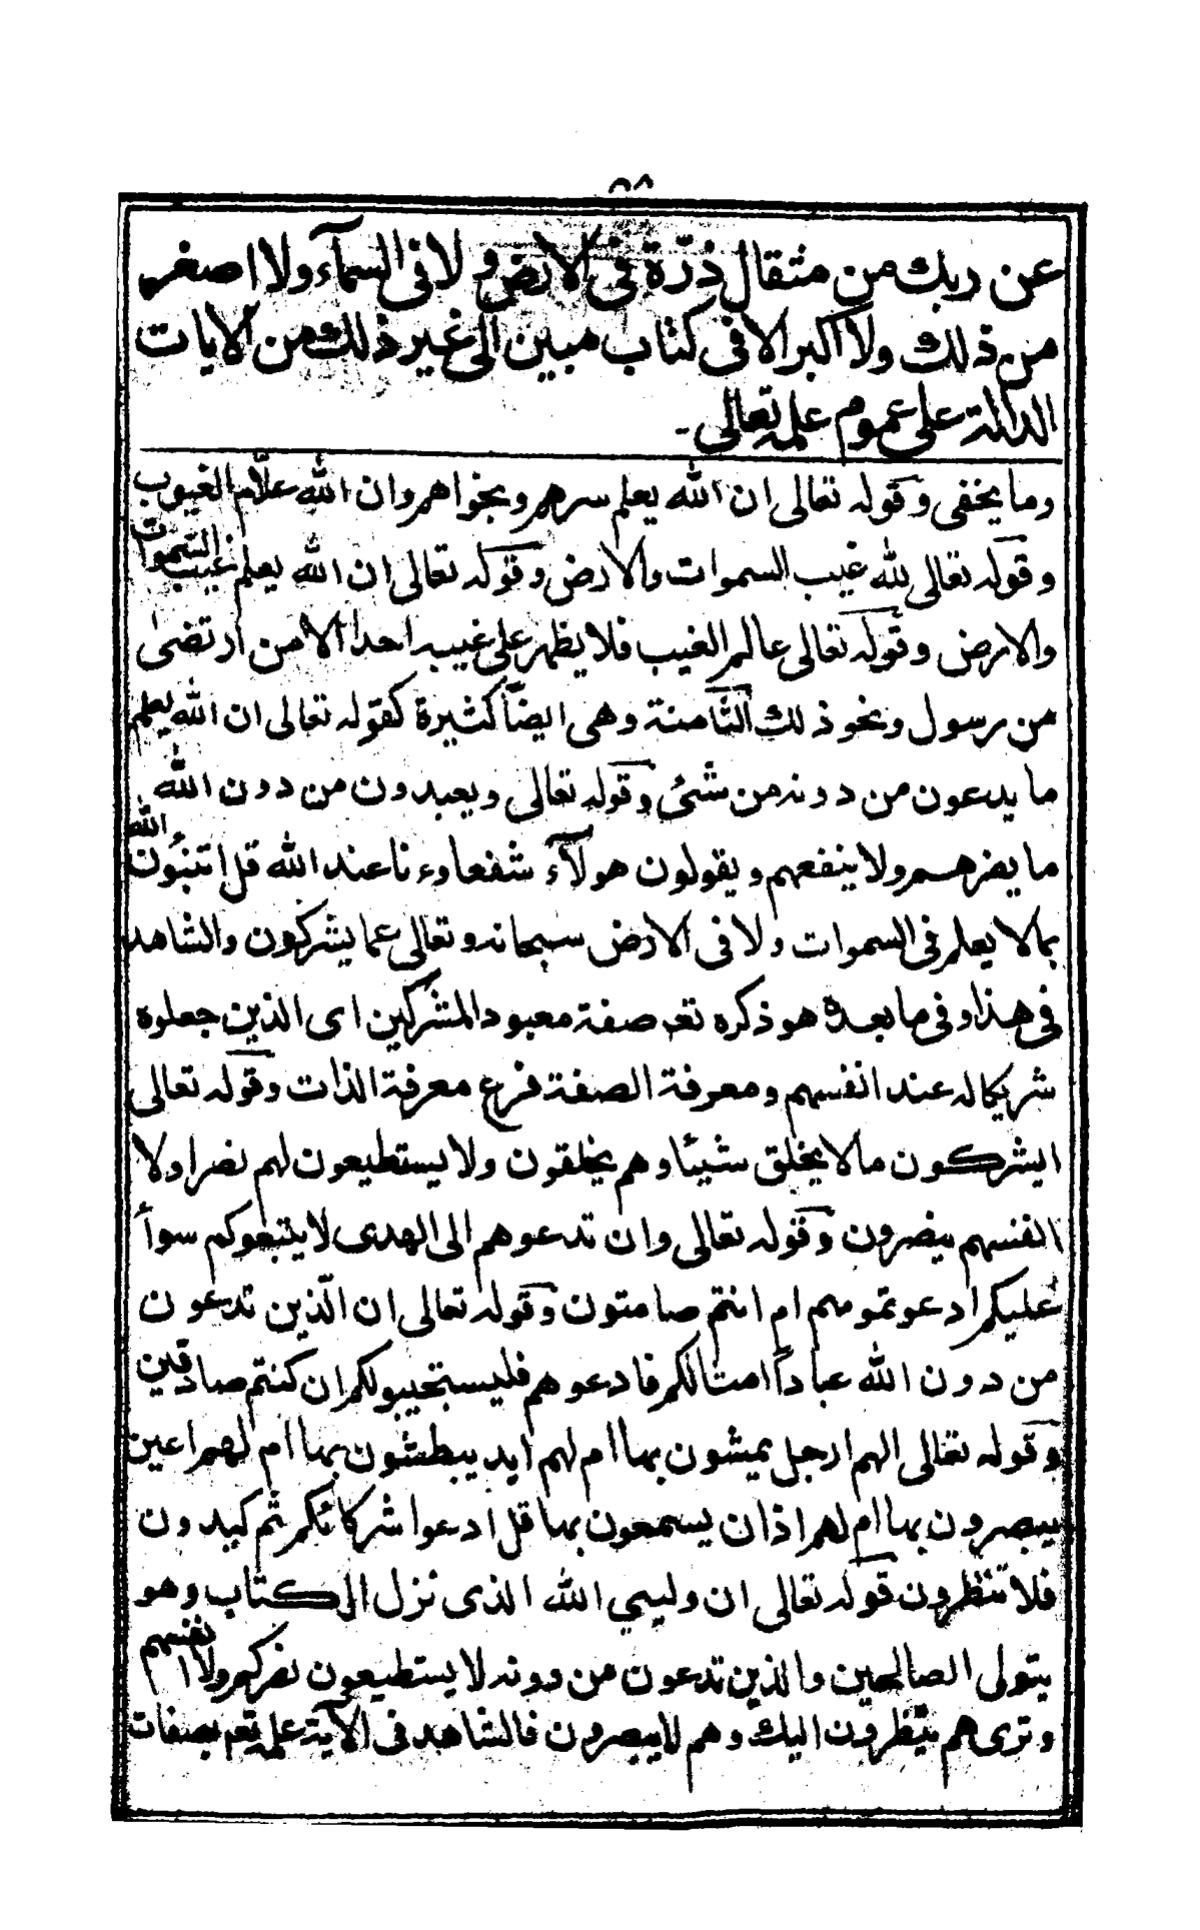 ٥٨
عن ربك من مثقال ذرّة فى الارض ولا فى السمآء ولا اصغر
من ذلك ولا اكبر الا فى كتاب مبين الى غير ذلك من الايات
الدالة على عموم علمه تعالى -
وما يخفى وقوله تعالى ان الله يعلم سرهم ونجواهم وان الله علّام الغيوب
وقوله تعالى لله غيب السموات والارض وقوله تعالى ان الله يعلم غيب السموات
والارض وقوله تعالى عالم الغيب فلا يظهر على غيبه احدا الا من ارتضى
من رسول ونحو ذلك الثامنة وهى ايضاً كثيرة كقوله تعالى ان الله يعلم
ما يدعون من دونه من شئ وقوله تعالى ويعبدون من دون الله
ما يضرهم ولا ينفعهم ويقولون هولآء شفعاوءنا عند الله قل اتنبئون الله
بما لا يعلم فى السموات ولا فى الارض سبحانه وتعالى عما يشركون والشاهد
فى هذا وفى ما بعده هو ذكره تعـ صفة معبود المشركين اى الذين جعلوه
شريكا له عند انفسهم ومعرفة الصفة فرع معرفة الذات وقوله تعالى
ايشركون مالا يخلق شيئا وهم يخلقون ولا يستطيعون لهم نصرا ولا
انفسهم ينصرون وقوله تعالى وان تدعوهم الى الهدى لا يتبعوكم سوآ
عليكم ادعوتموهم ام انتم صامتون وقوله تعالى ان الّذين تدعون
من دون الله عباداً امثالكم فادعوهم فليستجيبولكم ان كنتم صادقين
وقوله تعالى الهم ارجل يمشون بها ام لهم ايد يبطشون بها ام لهم اعين
يبصرون بها ام لهم اذان يسمعون بها قل ادعوا شركائكم ثم كيدون
فلا تنظرون قوله تعالى ان وليي الله الذى نزل الكتاب وهو
يتولى الصالحين والذين تدعون من دونه لا يستطيعون نصركم ولا انفسهم
وترى هم ينظرون اليك وهم لا يبصرون فالشاهد فى الآية علمه تعـ بصفات